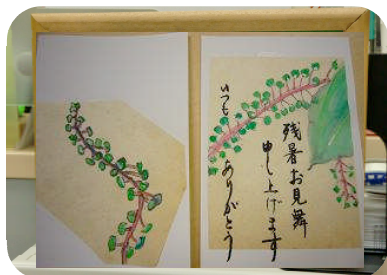 残暑お見舞
申し上げます
いつも
ありがとう